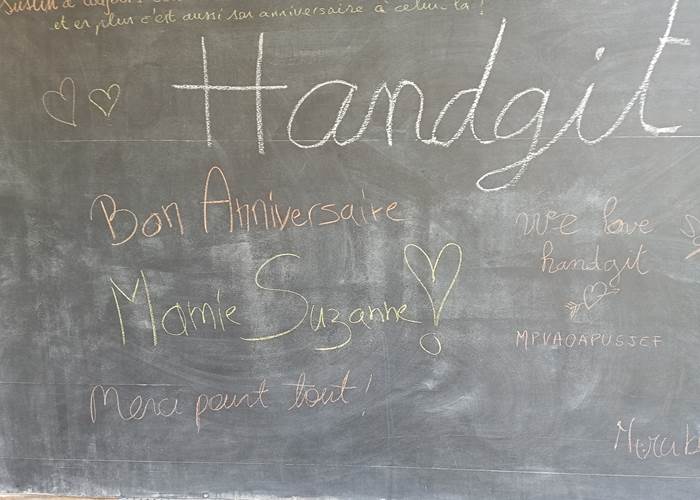 et en plus c'est aussi son anniversaire à celui-là !
Handgit
Bon Anniversaire
Mamie Suzanne!
Merci pount tout!
We love
handgit
MPVAOAPUSJEF